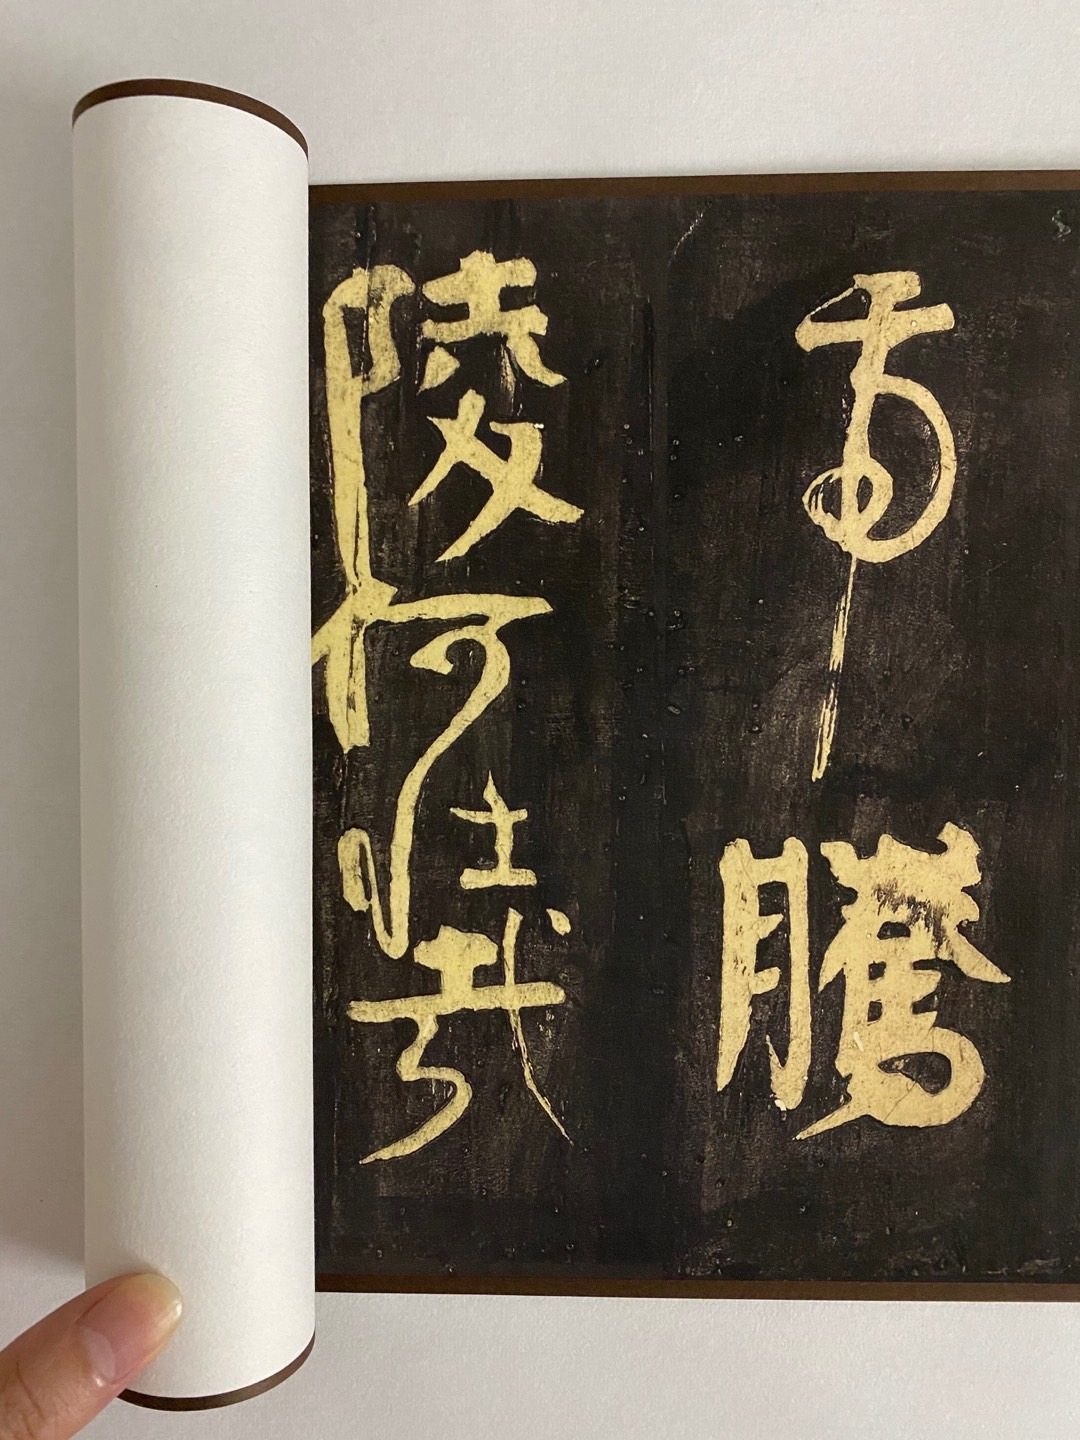 虎騰
陵何壯哉